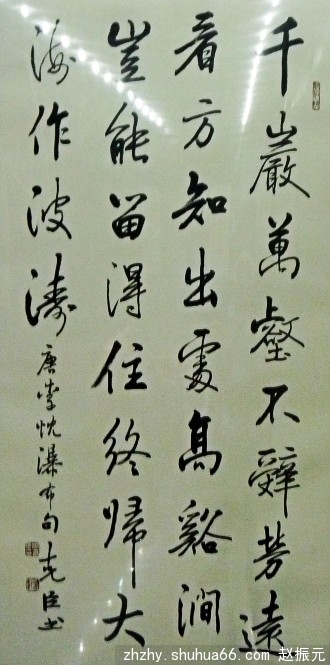 千巖萬壑不辭勞遠
看方知出處高谿澗
豈能留得住終歸大
海作波濤 唐李忱瀑布句 克臣书
zhzhy.shuhua66.com 赵振元